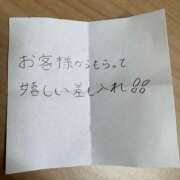 お客様からもらって
嬉しい差し入れ!!